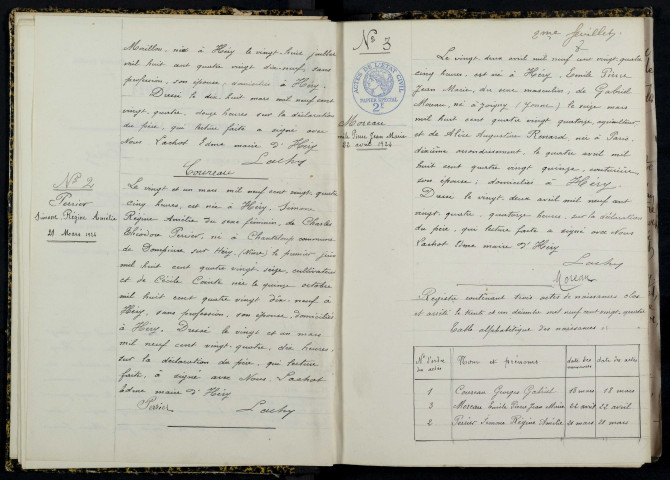 Maillon, née à Héry le vingt-huit juillet
mil huit cent quatre vingt dix-neuf, sans
profession, son épouse, domiciliés à Héry.
Dressé le dix huit mars mil neuf cent
vingt-quatre, douze heures sur la déclaration
du père, qui lecture faite a signé avec
Nous Lachot Edme maire d'Héry
Coureau
Lachy
N° 2
Perrier
Simone Régine Amélie
21 Mars 1924
Le vingt et un mars mil neuf cent vingt-quatre
cinq heures, est née à Héry, Simone
Régine Amélie du sexe féminin, de Charles
Théodore Perrier, né à
commune
de Dompierre sur Héry (Nièvre) le premier juin
mil huit cent quatre vingt seize, cultivateur
et de Cécile Comte née le quinze octobre
mil huit cent quatre vingt dix-neuf à
Héry, sans profession, son épouse, domiciliés
à Héry. Dressé le vingt et un mars
mil neuf cent vingt-quatre, dix heures,
sur la déclaration du père, qui lecture
faite, a signé avec Nous, Lachot
Edme maire d'Héry
Perrier
Lachy
2me feuillet.
N° 3
ACTES DE L'ÉTAT CIVIL
PAPIER SPÉCIAL
2F
Moreau
Emile Pierre Jean Marie
22 avril 1924
Le vingt deux avril mil neuf cent vingt-quatre
cinq heures, est né à Héry, Emile Pierre
Jean Marie, du sexe masculin, de Gabriel
Moreau, né à Joigny (Yonne) le seize mars
mil huit cent quatre vingt quatorze, agriculteur
et de Alice Augustine Renard, née à Paris,
dixième arrondissement, le quatre avril mil
huit cent quatre vingt quinze, couturière
son épouse; domiciliés à Héry.
Dressé le vingt deux avril mil neuf cent
vingt-quatre, quatorze heures, sur la déclaration
du père, qui lecture faite a signé avec Nous
Lachot Edme maire d'Héry
Lachy
Moreau
Registre contenant trois actes de naissances clos
et arrêté le trente et un décembre mil neuf cent vingt quatre
Table alphabétique des naissances
N° d'ordre des actes Nom et prénoms date des naissances date des actes
1 Coureau Georges Gabriel 18 mars 18 mars
3 Moreau Emile Pierre Jean Marie 22 avril 22 avril
2 Perrier Simone Régine Amélie 21 mars 21 mars